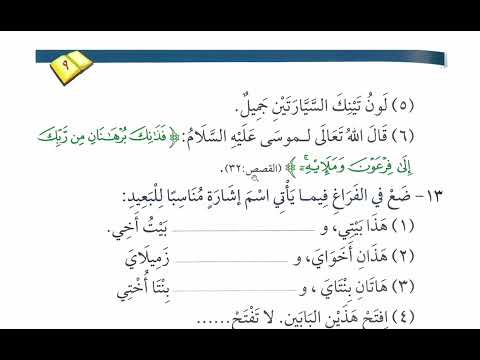 ٩
(٥) لَونُ تَيْنِكَ السَّيَّارَتَيْنِ جَمِيلٌ.
(٦) قَالَ اللهُ تَعَالَى لـموسَى عَلَيْهِ السَّلَامُ: ﴿ فَذَانِكَ بُرْهَانَانِ مِن رَّبِّكَ
إِلَى فِرْعَوْنَ وَمَلَإِيْهِۦٓ ﴾ (القصص:٣٢).
١٣- ضَعْ في الفَرَاغِ فِيمـا يَأْتِي اسْمَ إِشَارَةٍ مُنَاسِبًا لِلْبَعِيدِ:
(١) هَذَا بَيْتِي، و ـــــــــــــ بَيْتُ أَخِي.
(٢) هَذَانِ أَخَوَايَ، و ـــــــــــــ زَمِيلَايَ
(٣) هَاتَانِ بِنْتَايَ، و ـــــــــــــ بِنْتَا أُخْتِي
(٤) اِفْتَحْ هَذَيْنِ البَابَينِ. لَا تَفْتَحْ......